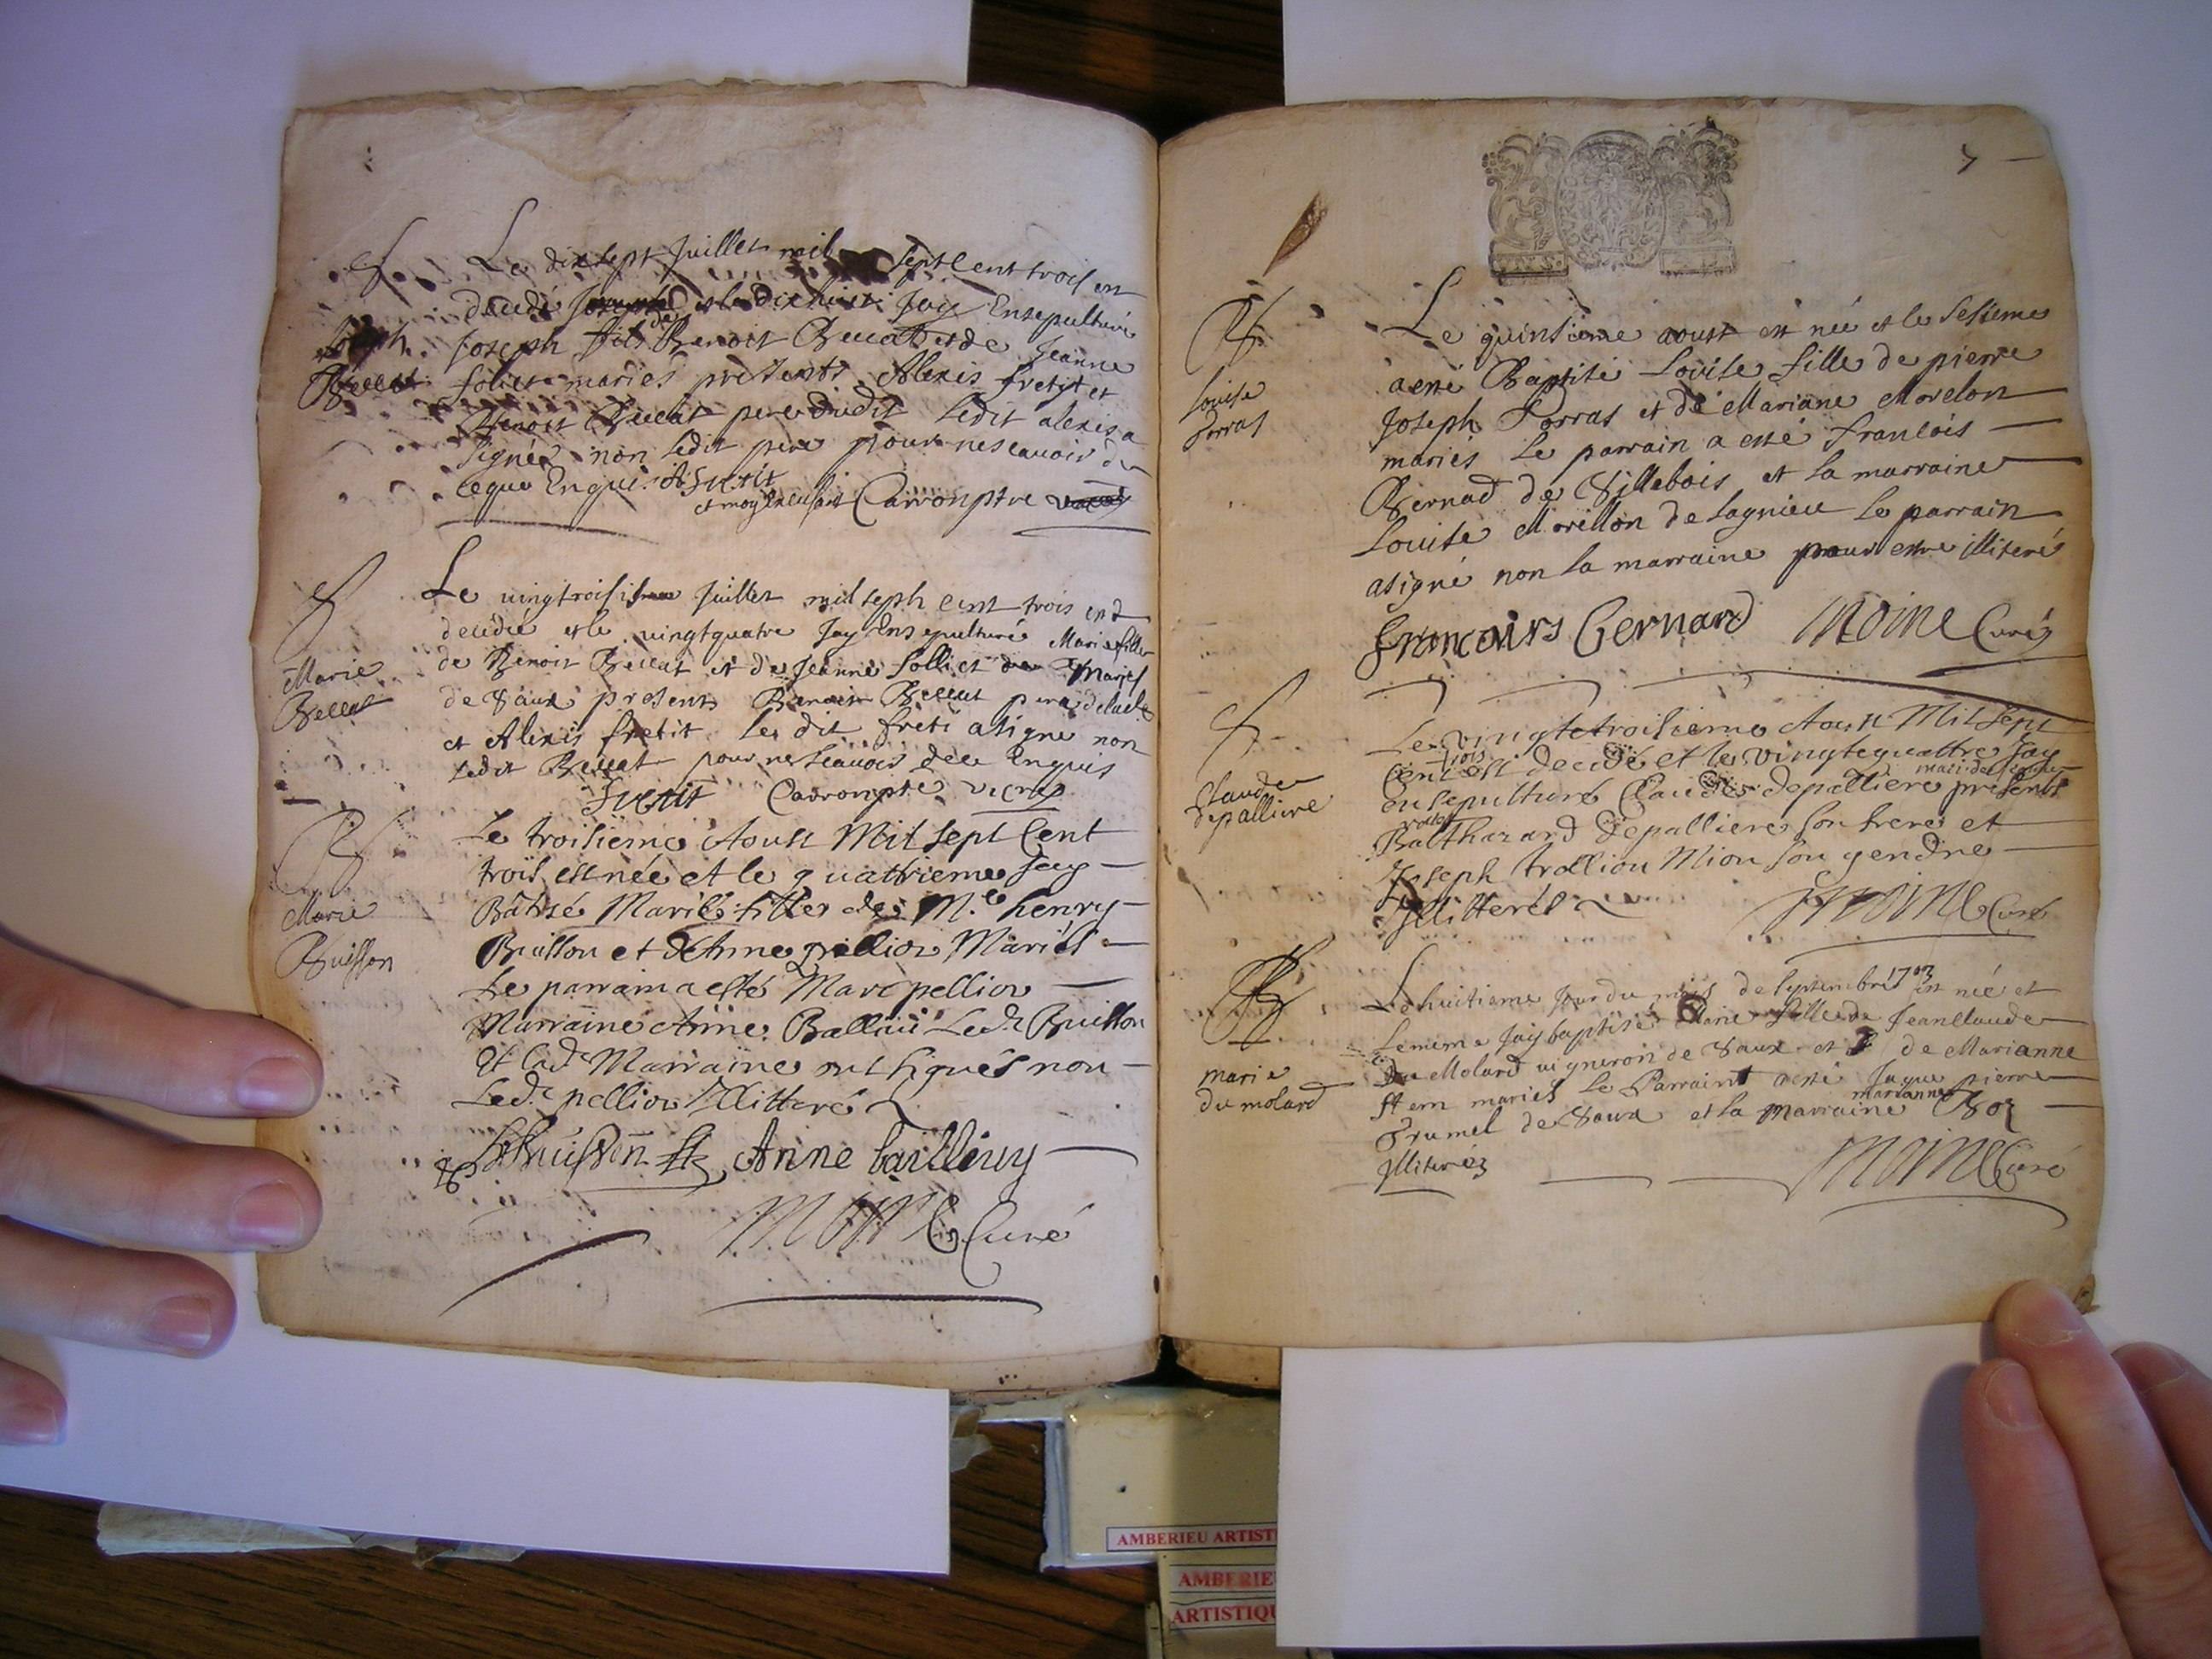 Le dix sept Juillet mil sept Cent trois est
decedé et le dix huict Jay Ensepulturé
Joseph fils de Benoit Beccat et de Jeanne
folliet mariés presents Alexis fretit et
Benoit Beccat pere dudit ledit alexis a
signé non ledit pere pour ne scavoir de
ce que Enquis A fretit
Carronptre
Joseph
Beccat
Le vingtroisi Juillet mil seph cent trois est
decedée et le vingtquatre Jay Ensepulturé Marie fille
de Benoit Beccat et de Jeanne folliet mariés
de Vaux presents Benoit Beccat pere de lad
et Alexis fretit ledit freti a signe non
ledit Beccat pour ne scavoir dece Enquis
fretit Carronptre vicre
Marie
Beccat
Le troisieme Aoust Mil sept Cent
trois est née et le quattrieme Jay
Batisé Marie fille de M.e henry
Buisson et de Anne pellion Mariés
Le parrain a esté Marc pellion
Marraine Anne Balliui Led.t Buisson
Et lad.e Marraine ont signés non
Led.t pellion Illitteré
Buisson Anne bailliuy
Moine Curé
Marie
Buisson
Le quinsieme aoust est née et le sesieme
a esté Baptisé Louise fille de pierre
Joseph Porras et de Mariane Morelon
mariés le parrain a esté francois
Bernad de Villebois et la marraine
Louise Morillon de Lagnieu le parrain
a signé non la marraine pour estre illiteré
francoirs bernard Moine Curé
louise
Porras
Le vingtetroisieme Aoust Mil sept
Cent trois est decedé et le vingtequattre Jay
ensepulturé Claude depalliere presents
Balthazard depalliere son frere et
Joseph trollion Mion son gendre
Illitterés Moine Curé
Claude
depalliere
Le huitieme Jour du mois de septembre 1703 est née et
le meme Jay baptisé Marie fille de Jean Claude
Du Molard vigneron de Vaux et de Marianne
Stem mariés le Parraint a esté Jaque pierre
Trumel de Vaux et la marraine marianne Boz
Illiterés Moine Curé
marie
du molard
AMBERIEU ARTIST
AMBERIE
ARTISTIQU